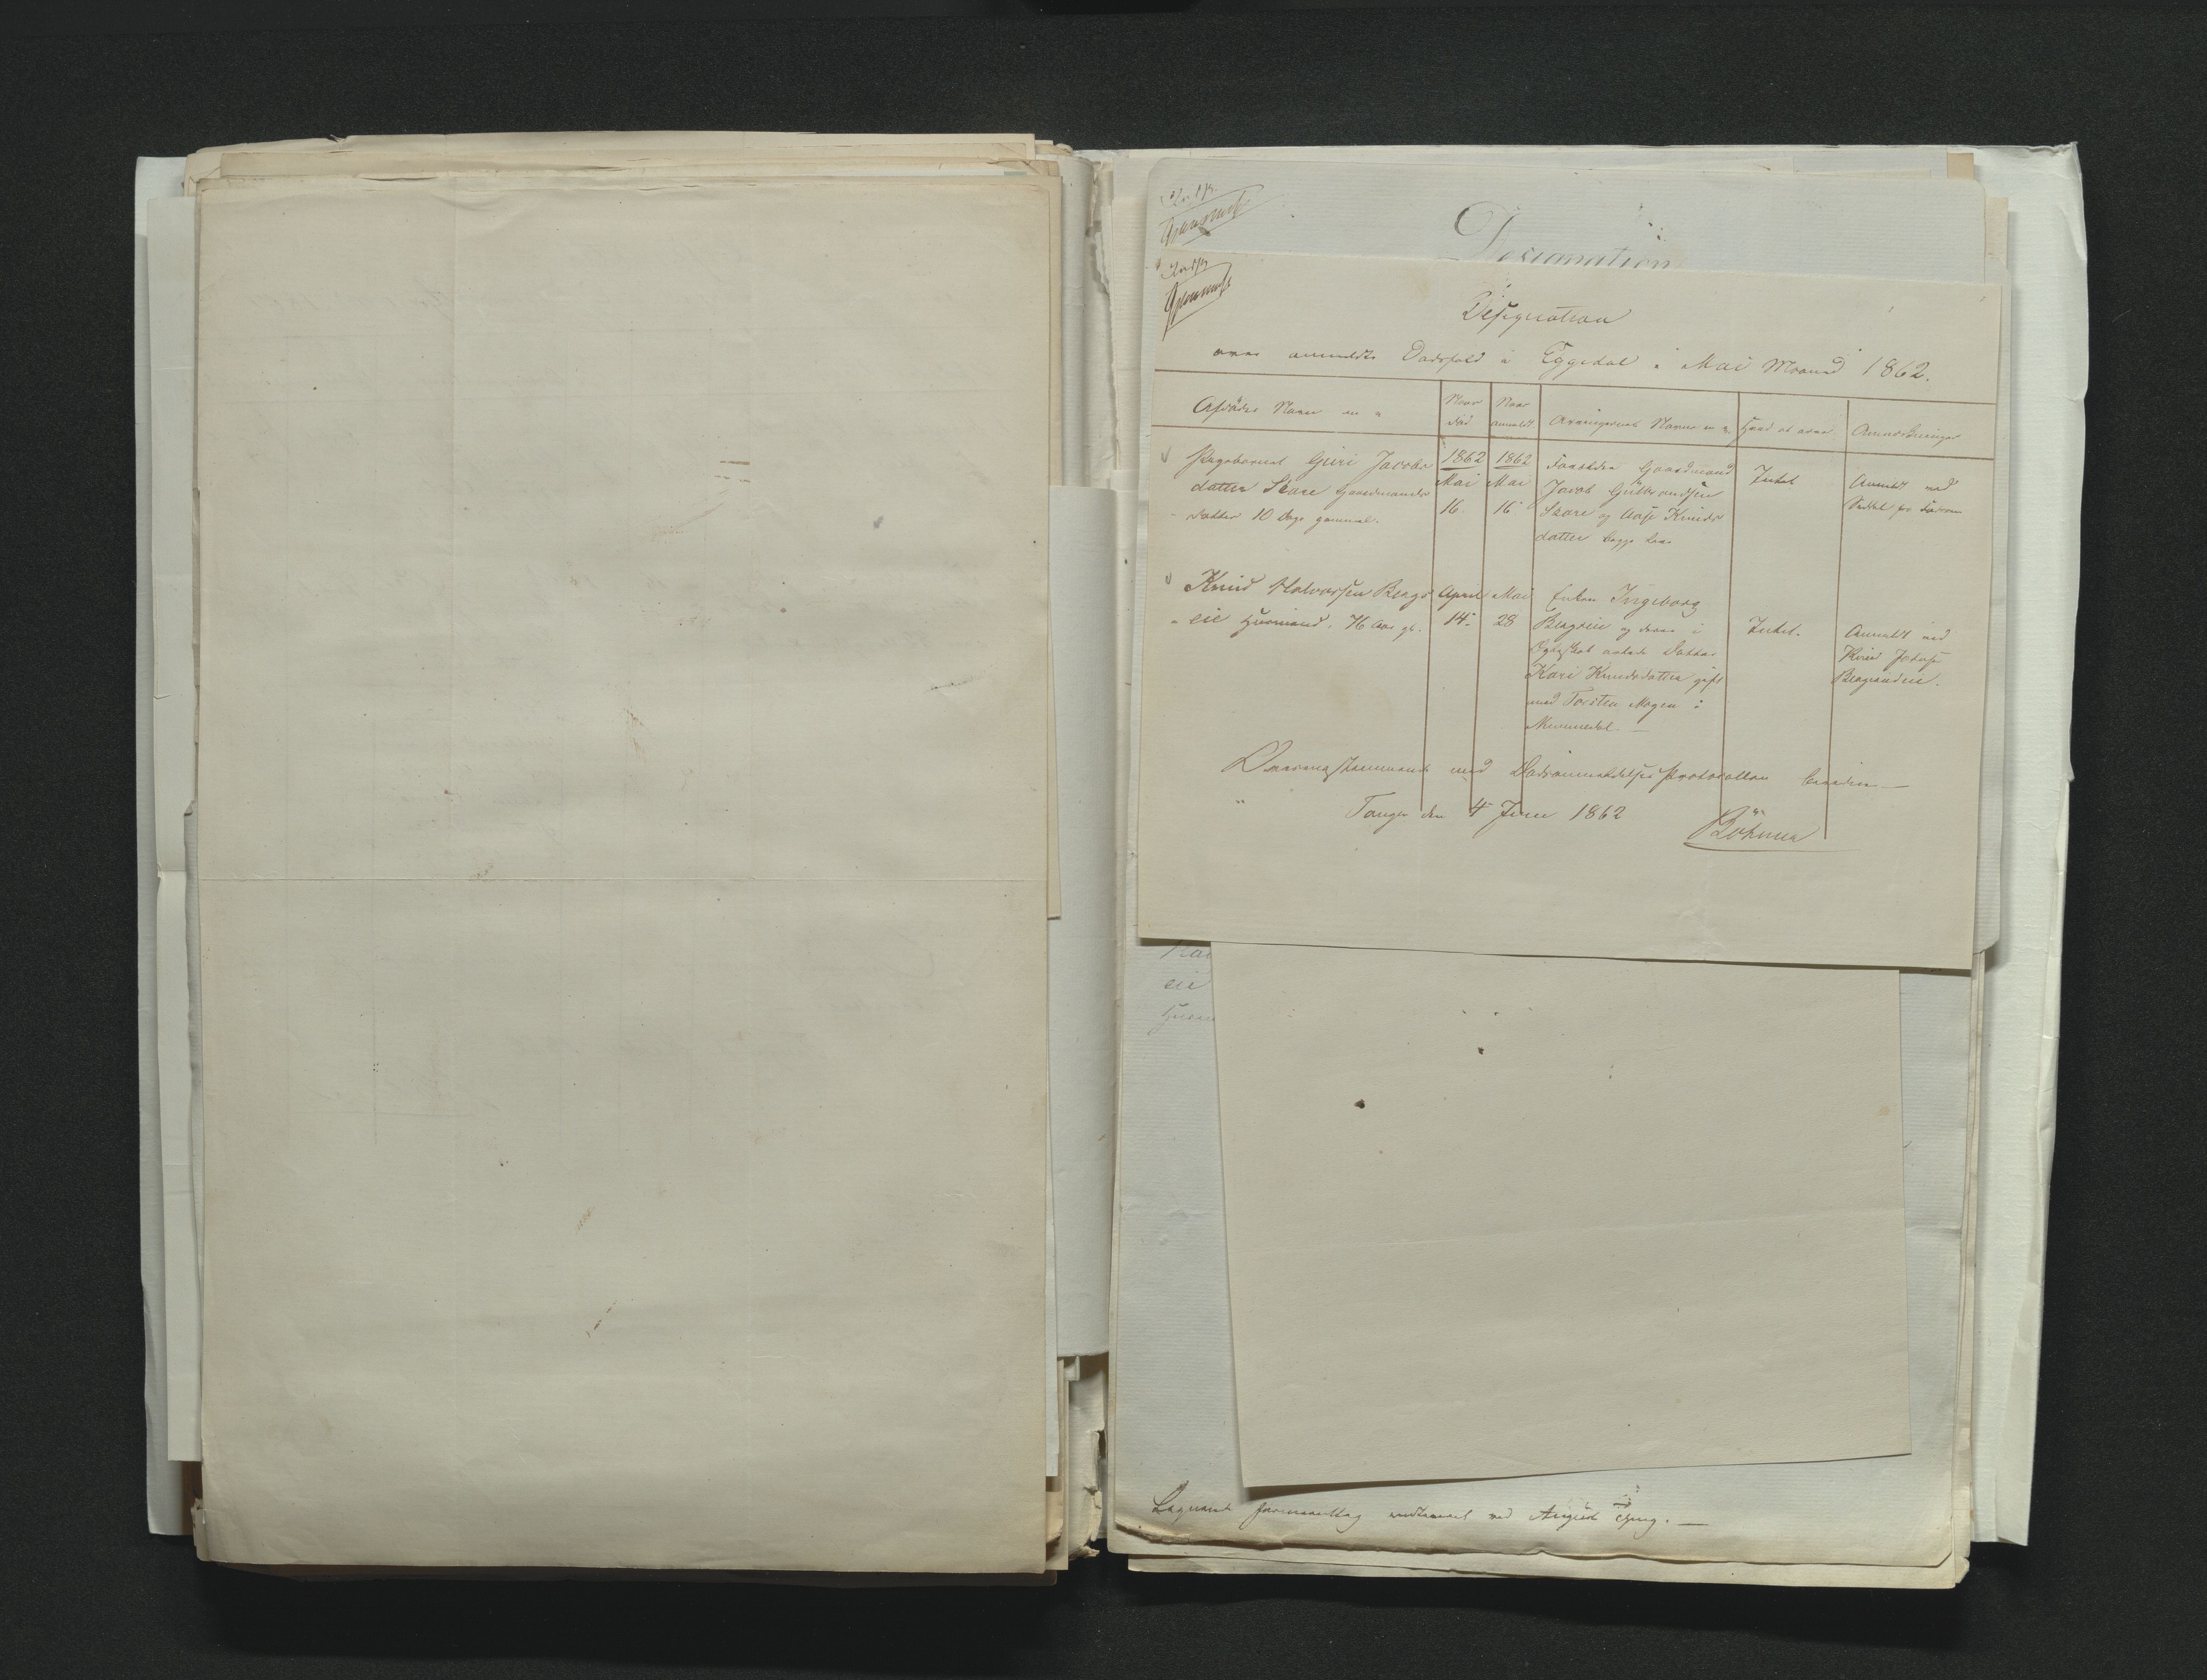 Designation
Designation
over anmeldte Dødsfald i Eggedal i Mai Maaned 1862.
Afdødes Navn m. v.
Naar død
Naar anmeldt.
Arvingernes Navne m. v.
Hvad at arve
Anmærkninger
Pigebarnet Guri Jacobs
datter Skare Gaardmands
datter 10 Dage gammel.
1862
Mai
16
1862
Mai
16
Forældre Gaardmand
Jacob Gulbrandsen
Skare og Aase Knuds
datter begge
Intet
Anmeldt med
Seddel fra Faderen
Knud Halvorsen Bergs
eie Huusmand, 76 Aar gl.
April
14
Mai
28
Enken Ingeborg
Bergseie og deres i
Egteskab avlede Datter
Kari Knudsdatter gift
med Torsten Mogen i
Nummedal
Intet.
Anmeldt ved
Knud
Overensstemmende med Dødsanmeldelses Protocollen bevidnes
den 4 Juni 1862
Böhmer
eie
August